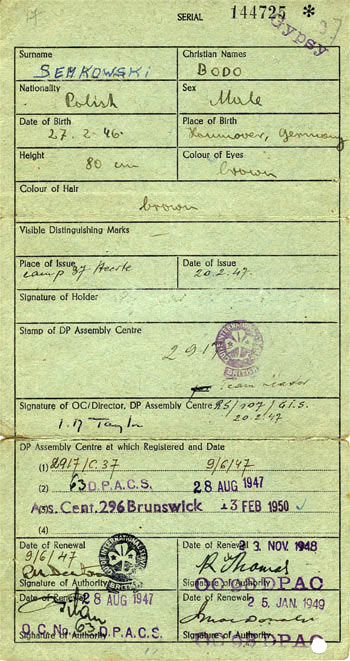 17
SERIAL 144725 *
Gypsy
37
Surname Christian Names
SEMKOWSKI BODO
Nationality Sex
Polish Male
Date of Birth Place of Birth
27. 2. 46. Hannover, Germany
Height Colour of Eyes
80 cm brown
Colour of Hair
brown
Visible Distinguishing Marks
Place of Issue Date of Issue
Camp 37 Heerte 20.2.47.
Signature of Holder
Stamp of DP Assembly Centre
2917
Team Leader
Signature of OC/Director, DP Assembly Centre 25/107/G.I.S.
20.2.47
Taylor
DP Assembly Centre at which Registered and Date
(1) 2917/C.37 9/6/47
(2) 63 D.P.A.C.S. 28 AUG 1947
(3) Ass. Cent. 296 Brunswick 13 FEB 1950
(4)
Date of Renewal Date of Renewal 23 NOV. 1948
9/6/47
R Thomas
Signature of Authority Signature of Authority
OC 93 DPAC
Date of Renewal 28 AUG 1947 Date of Renewal 25 JAN. 1949
O.C. No 63 D.P.A.C.S.
Signature of Authority Signature of Authority
OC 93 DPAC